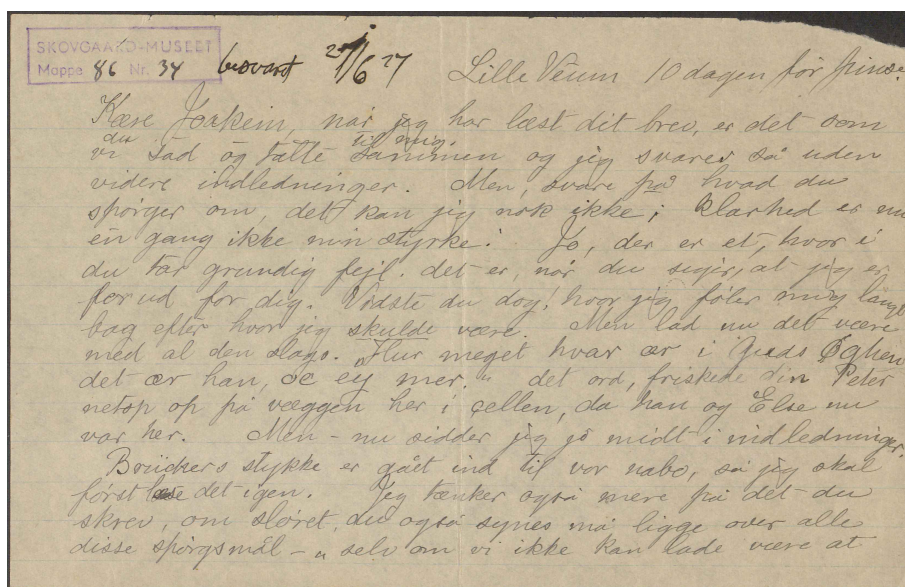 SKOVGAARD-MUSEET
Mappe 86 Nr. 34
besvaret 27/6 27
Lille Veum 10 dagen før pinse.
Kære Joakim, når jeg har læst dit brev, er det som
du til mig.
vi sad og talte sammen og jeg svarer så uden
videre indledninger. Men, svare på hvad du
spørger om, det kan jeg nok ikke; klarhed er nu
én gang ikke min styrke! Jo, der er et, hvor i
du tar grundig fejl. det er, når du siger, at jeg er
forud for dig. Vidste du dog! hvor jeg føler mig langt
bag efter hvor jeg skulde være. Men lad nu det være
med al den slags. "Hur meget hvar ær i Guds Øghen
det ær han, oc ey mer." det ord, friskede din Peter
netop op på væggen her i cellen, da han og Else nu
var her. Men - nu sidder jeg jo midt i indledninger.
Brückers stykke er gået ind til vor nabo, så jeg skal
først læse det igen. Jeg tænker også mere på det du
skrev, om sløret, du også synes må ligge over alle
disse spørgsmål - "selv om vi ikke kan lade være at